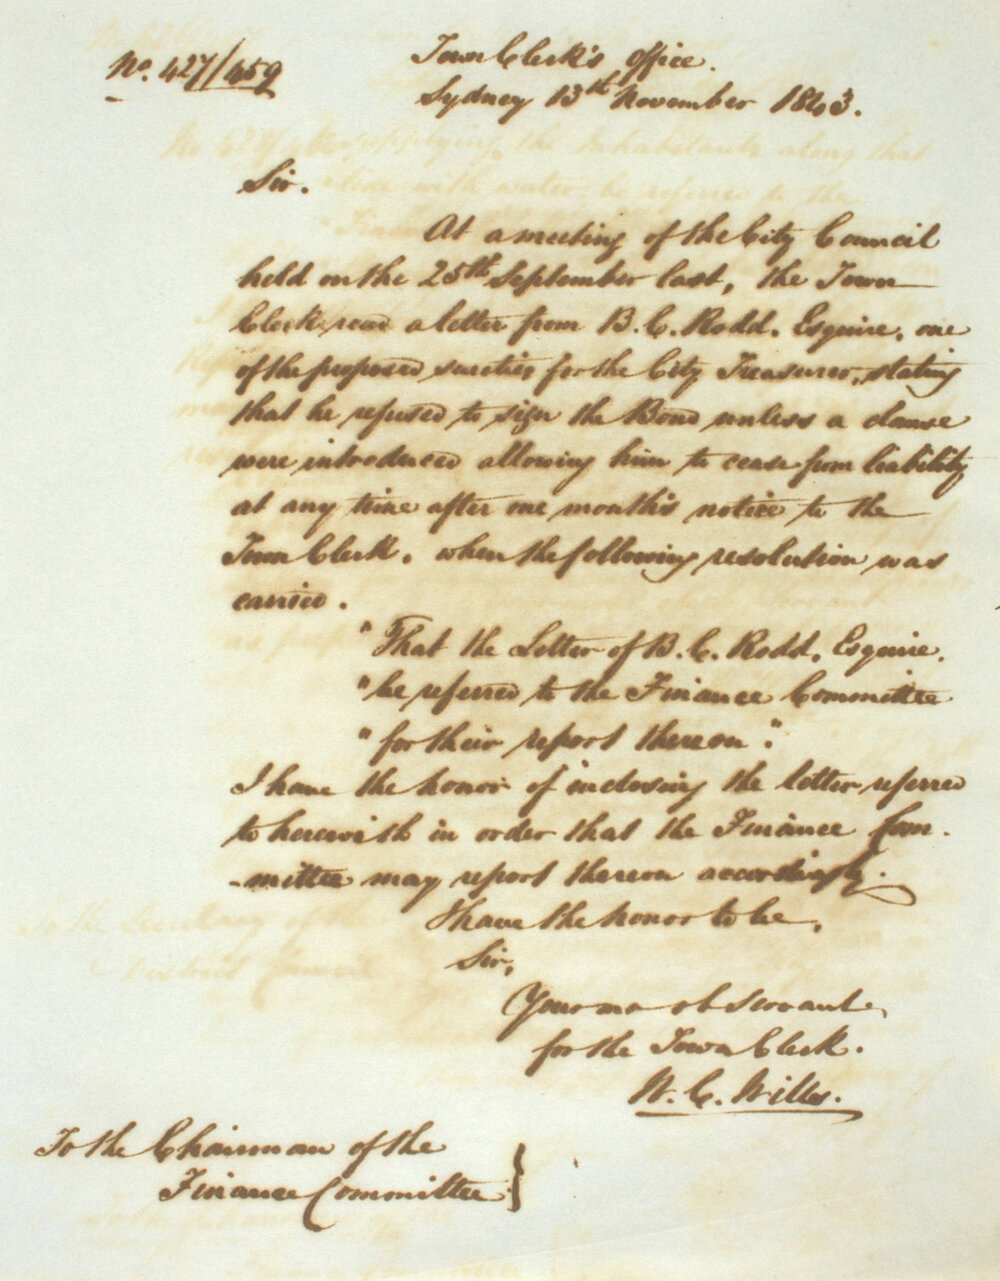 No. 427/459
Town Clerk's Office.
Sydney 13th November 1843.
Sir.
At a meeting of the City Council
held on the 25th September last, the Town
Clerk read a letter from B. C. Rodd. Esquire. one
of the proposed sureties for the City Treasurer, stating
that he refused to sign the Bond unless a clause
were introduced allowing him to cease from liability
at any time after one month's notice to the
Town Clerk. when the following resolution was
carried.
"That the Letter of B. C. Rodd. Esquire.
"be referred to the Finance Committee
"for their report thereon".
I have the honor of inclosing the letter referred
to herewith in order that the Finance Com-
-mittee may report thereon accordingly.
I have the honor to be,
Sir,
Your mo ob Servant,
for the Town Clerk.
W. C. Wills.
To the Chairman of the
Finance Committee }